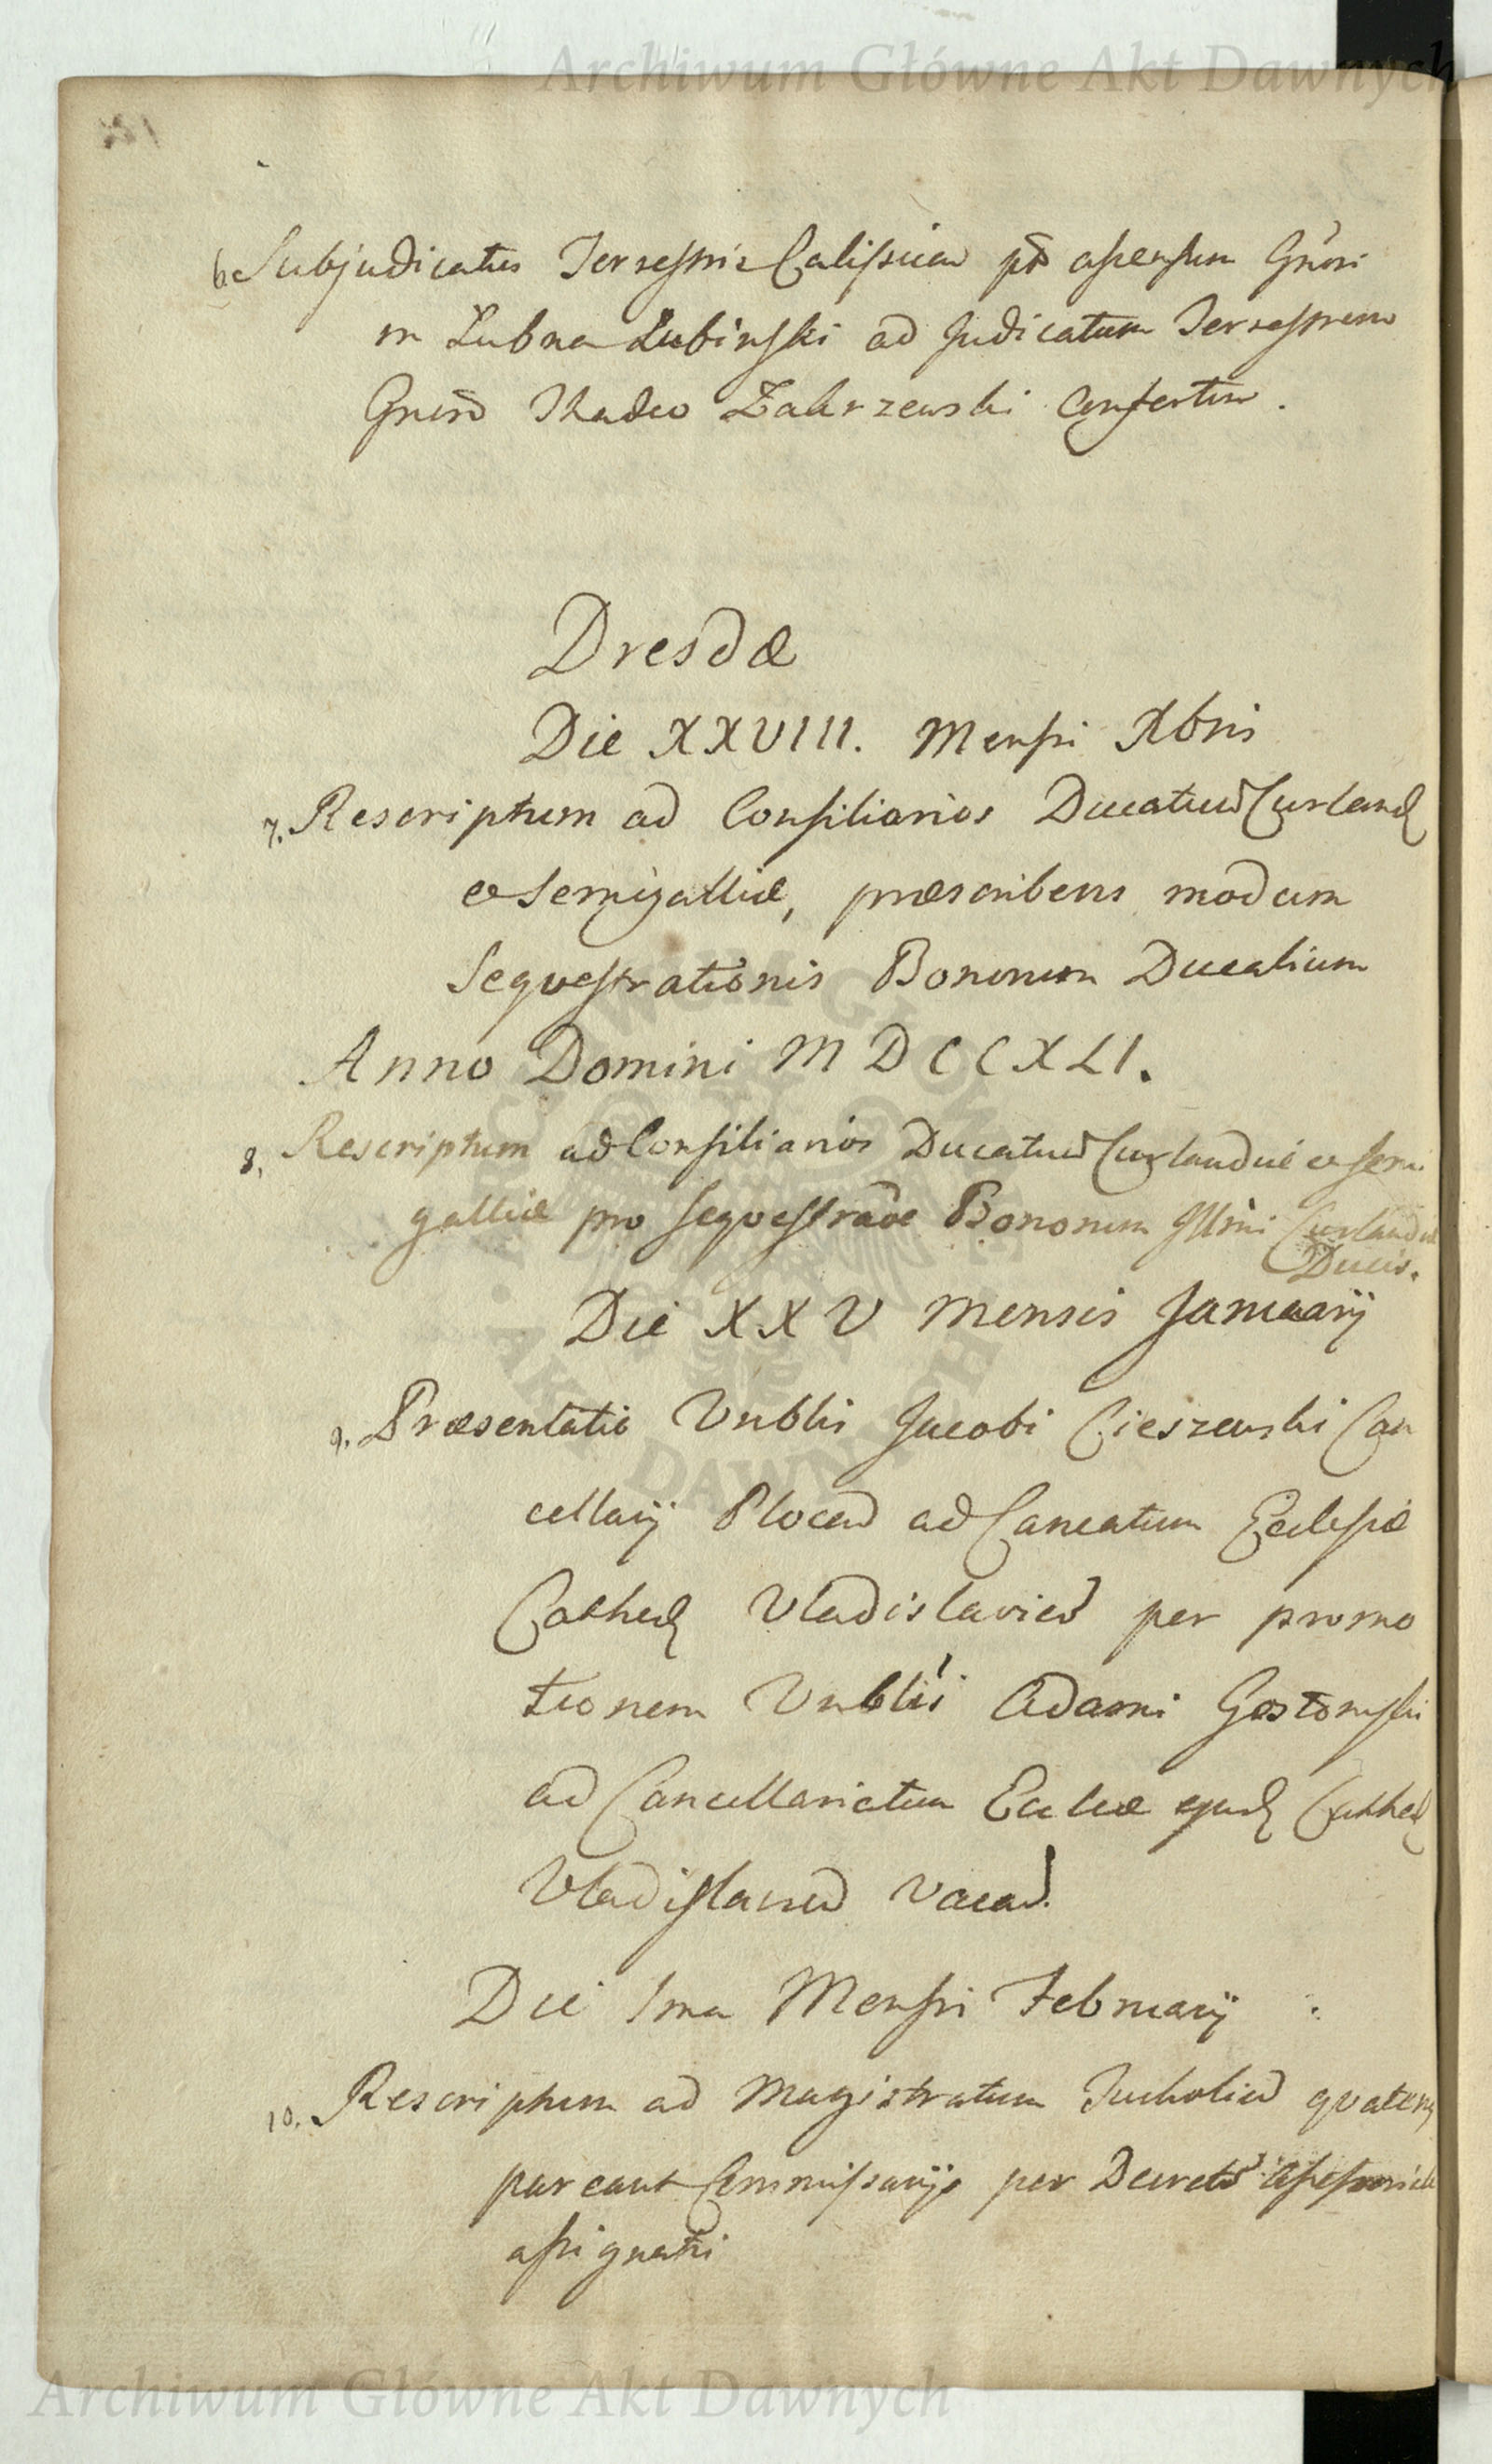 Archiwum Główne Akt Dawnych
6. Subjudicatus Terrestris Calissien pt assensum Gnosi
in Lubna Lubinski ad Judicatum Terrestrem
Gnoso Thadeo Zakrzewski Confertur.
Dresdæ
Die XXVIII. Mensis Xbris
7. Rescriptum ad Consiliarios Ducatuu Curland
et Semigalliæ, præscribens modum
Sequestrationis Bonorum Ducalium
Anno Domini MDCCXLI.
8. Rescriptum ad Consiliarios Ducatuu Curlandiæ et Semi
galliæ pro sequestraoe Bonorum Illmi Curlandiæ
Ducis.
Die XXV Mensis Januarij
9. Præsentatio Vnblis Jacobi Cieszewski Can
cellarij Plocen ad Cancatum Ecclesiæ
Cathed Vladislavien per promo
tionem Vnblis Adami Gostomski
ad Cancellariatum Eccleæ ejusd Cathed
Vladislavien vacan.
Die Ima Mensis Februarij
10. Rescriptum ad Magistratum Tucholien quatenus
pareant Commissarijs per Decret Assessoriale
assignatis
ARCHIWUM GŁÓWNE AKT DAWNYCH
Archiwum Główne Akt Dawnych